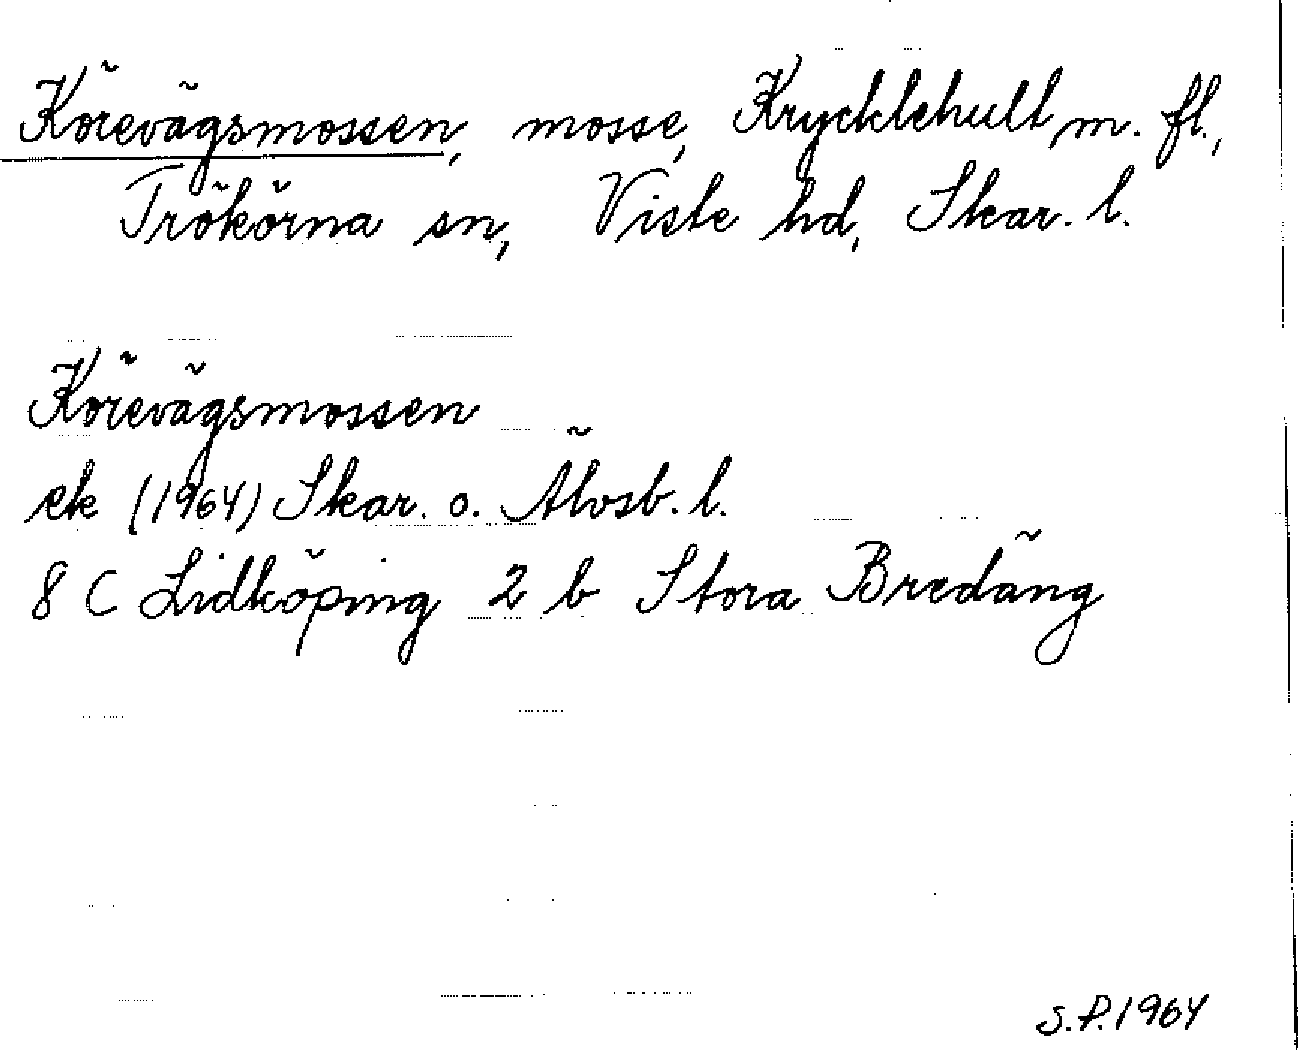 Körevägsmossen, mosse, Krycklehult m. fl.,
Trökörna sn, Viste hd, Skar. l.
Körevägsmossen
ek (1964) Skar. o. Älvsb. l.
8 C Lidköping 2 b Stora Bredäng
S.P. 1964